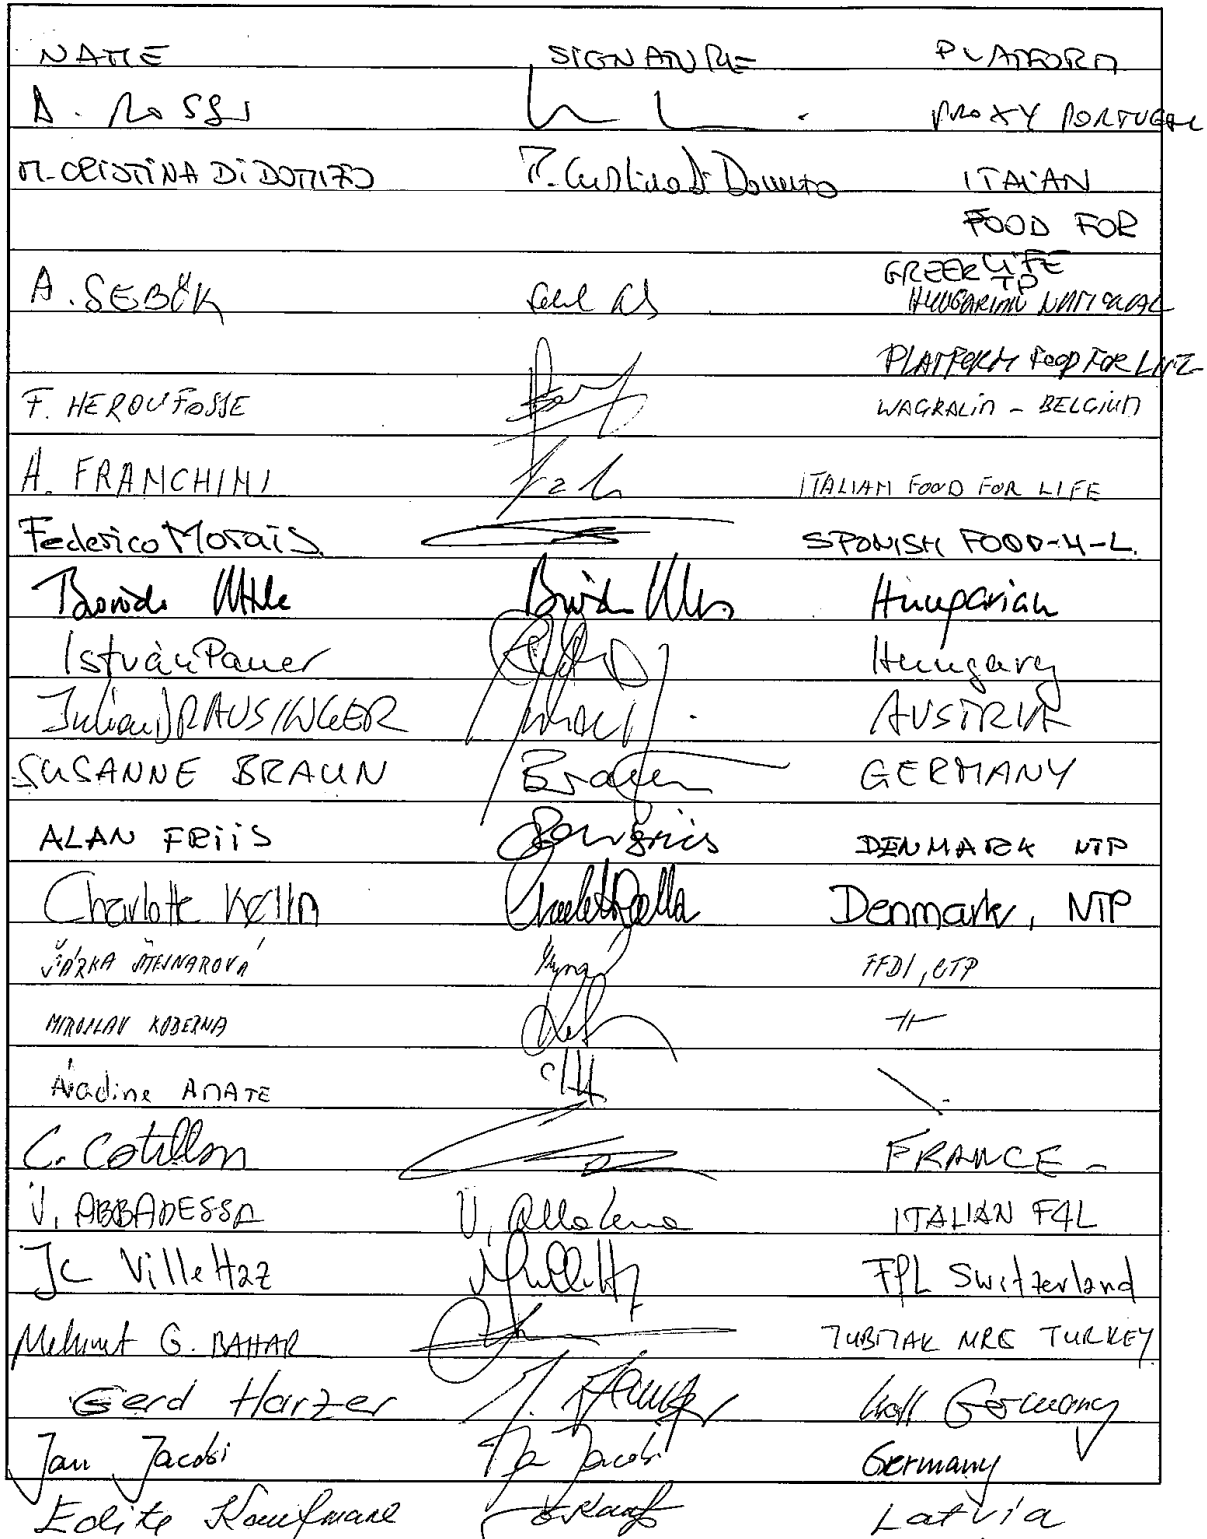 NAME SIGNATURE PLATFORM
A. ROSSI PROXY PORTUGAL
M. CRISTINA DI DOMIZIO ITALIAN
FOOD FOR
LIFE
GREEK TP
A. SEBŐK HUNGARIAN NATIONAL
PLATFORM FOOD FOR LIFE
F. HEROUFOSSE WAGRALIM - BELGIUM
A. FRANCHINI ITALIAN FOOD FOR LIFE
Federico Morais SPANISH FOOD-4-L.
Hungarian
István Pauer Hungary
Julian DRAUSINGER AUSTRIA
SUSANNE BRAUN Braun GERMANY
ALAN FRIIS DENMARK NTP
Charlotte Denmark, NTP
ŠÁRKA FFDI, CTP
MIROSLAV KOBERNA -11-
Nadine AMATE
C. Cotillon FRANCE -
V. ABBADESSA ITALIAN F4L
JC Villettaz FPL Switzerland
Mehmet G. BAHAR TUBITAK MRC TURKEY
Gerd Harzer Germany
Jan Jacobi Jacobi Germany
Edite Kaufmane Latvia